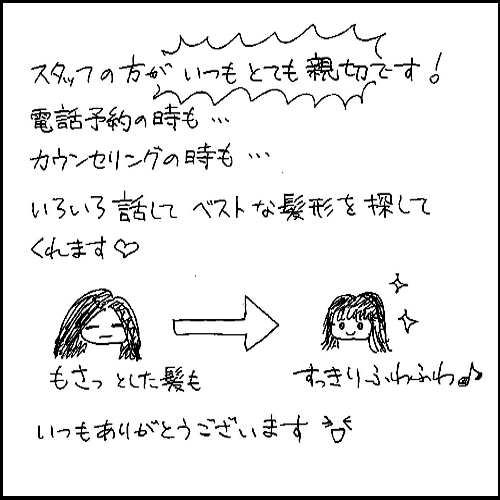 スタッフの方がいつもとても親切です!
電話予約の時も…
カウンセリングの時も…
いろいろ話してベストな髪形を探して
くれます♡
もさっとした髪も
すっきりふわふわ♪
いつもありがとうございます